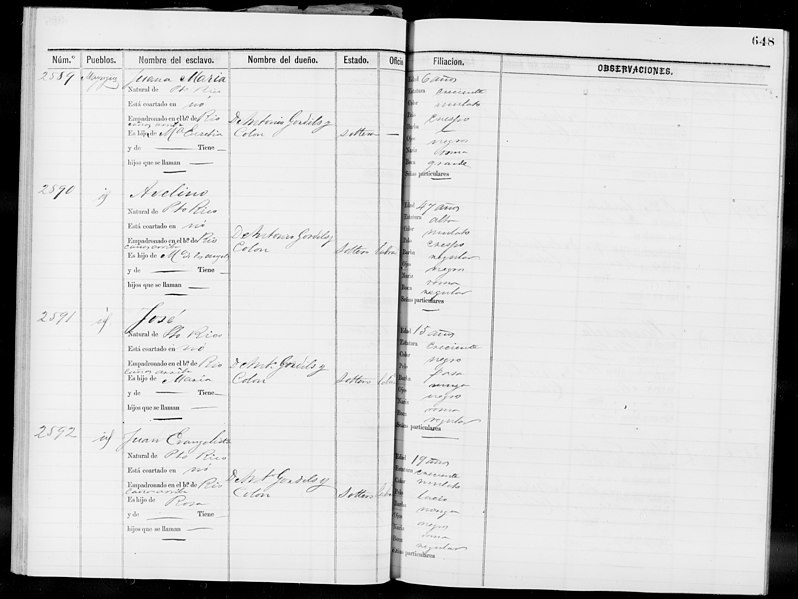 648
Núm.º Pueblos. Nombre del esclavo. Nombre del dueño. Estado. Oficio Filiacion. OBSERVACIONES.
2589 Juana Maria
Natural de Pto Rico
Está coartado en no
Empadronado en el b.º de Rio
cañas arriba
Es hijo de Mª Eusebia
y de — Tiene —
hijos que se llaman —
Dn Antonio Gordils y
Colon
Soltera —
Edad 6 años
Estatura creciente
Color mulato
Pelo crespo
Barba —
Ojos negros
Nariz roma
Boca grande
Señas particulares —
2590 id Avelino
Natural de Pto Rico
Está coartado en no
Empadronado en el b.º de Rio
cañas arriba
Es hijo de Mª de los angeles
y de — Tiene —
hijos que se llaman —
Dn Antonio Gordils y
Colon
Soltero Labra
Edad 47 años
Estatura alta
Color mulato
Pelo crespo
Barba regular
Ojos negros
Nariz roma
Boca regular
Señas particulares —
2591 id José
Natural de Pto Rico
Está coartado en no
Empadronado en el b.º de Rio
cañas arriba
Es hijo de Maria
y de — Tiene —
hijos que se llaman —
Dn Ant.º Gordils y
Colon
Soltero Labra
Edad 15 años
Estatura Creciente
Color negro
Pelo pasa
Barba
Ojos negros
Nariz roma
Boca regular
Señas particulares —
2592 id Juan Evangelista
Natural de Pto Rico
Está coartado en no
Empadronado en el b.º de Rio
cañas arriba
Es hijo de Rosa
y de — Tiene —
hijos que se llaman —
Dn Ant.º Gordils y
Colón
Soltero Labra
Edad 19 años
Estatura creciente
Color mulato
Pelo lacio
Barba
Ojos negros
Nariz roma
Boca regular
Señas particulares